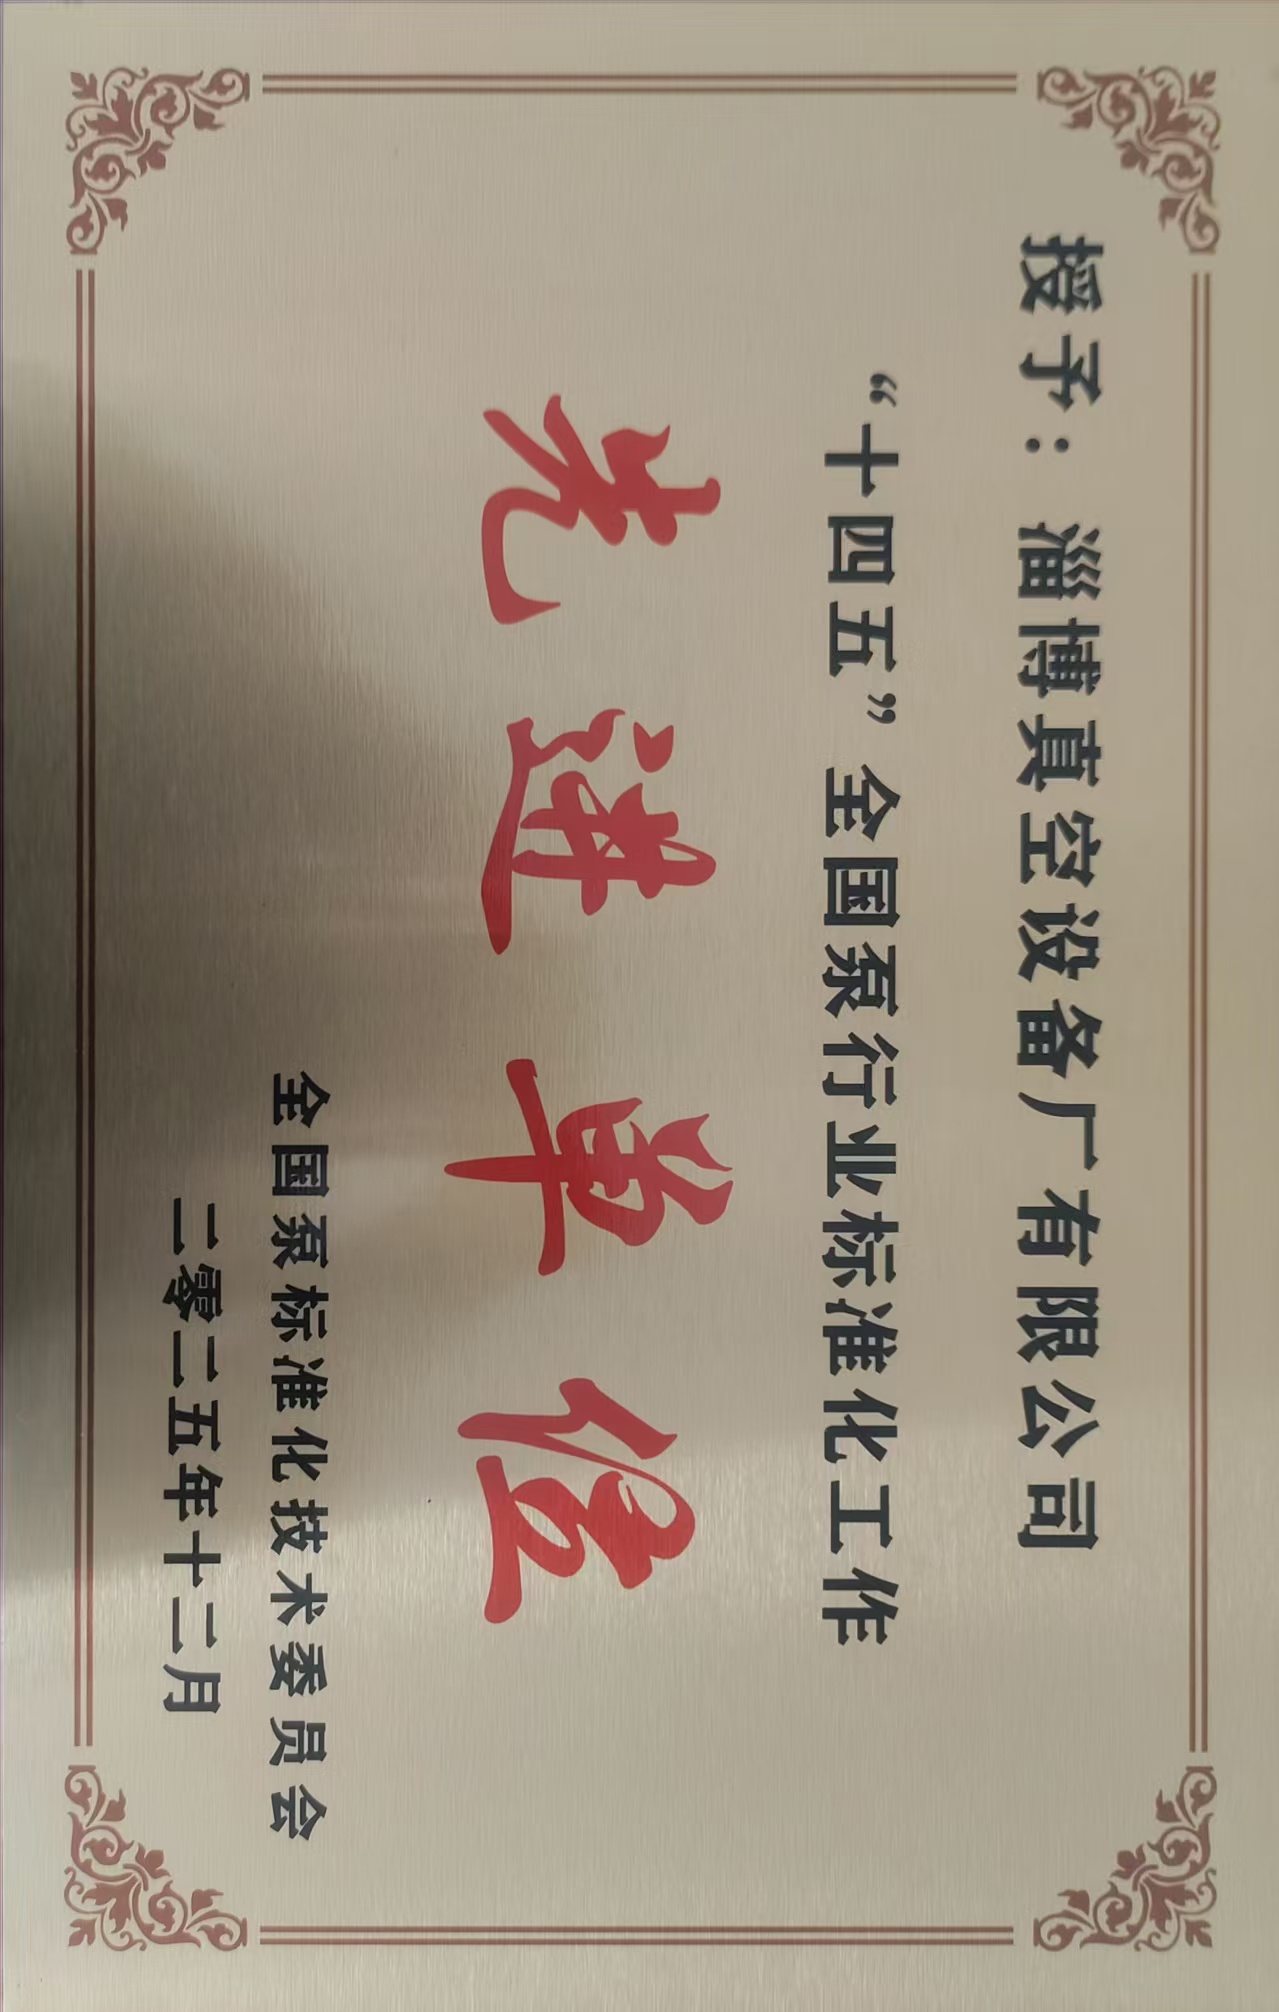 授予：淄博真空设备厂有限公司
“十四五”全国泵行业标准化工作
先进单位
全国泵标准化技术委员会
二零二五年十二月